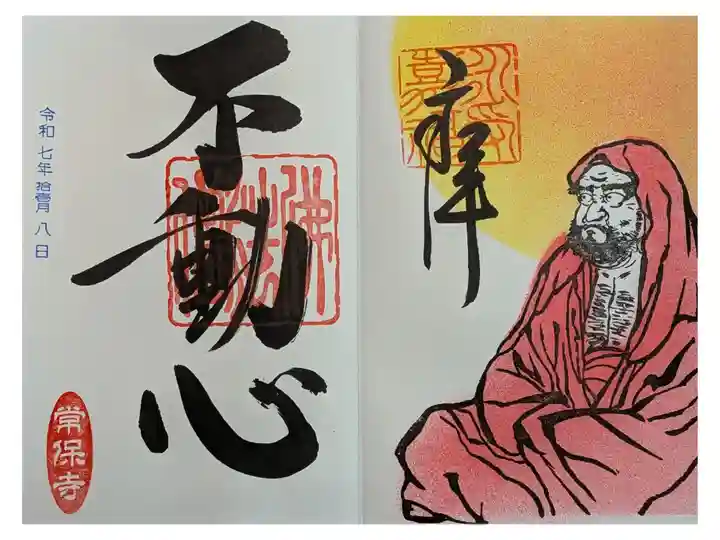 奉拝
不動心
令和七年拾壹月八日
常保寺